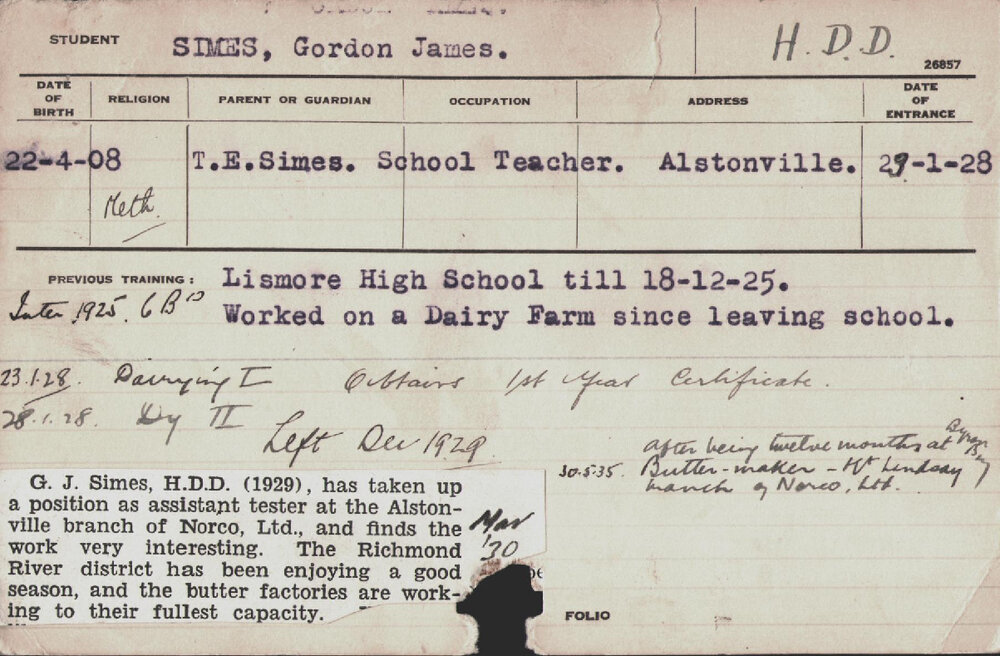 STUDENT SIMES, Gordon James. H.D.D. 26857
DATE OF BIRTH RELIGION PARENT OR GUARDIAN OCCUPATION ADDRESS DATE OF ENTRANCE
22-4-08 T.E.Simes. School Teacher. Alstonville. 29-1-28
Meth.
PREVIOUS TRAINING: Lismore High School till 18-12-25.
Inter 1925. 6 Bs Worked on a Dairy Farm since leaving school.
23.1.28. Dairying I Obtains 1st Year Certificate.
28.1.28. Dy II
Left Dec 1929
After being twelve months at Byron Bay
30.5.35. Butter-maker - Mt Lindsay
branch of Norco, Ltd.
G. J. Simes, H.D.D. (1929), has taken up
a position as assistant tester at the Alston-
ville branch of Norco, Ltd., and finds the
work very interesting. The Richmond
River district has been enjoying a good
season, and the butter factories are work-
ing to their fullest capacity.
Mar
'30
FOLIO